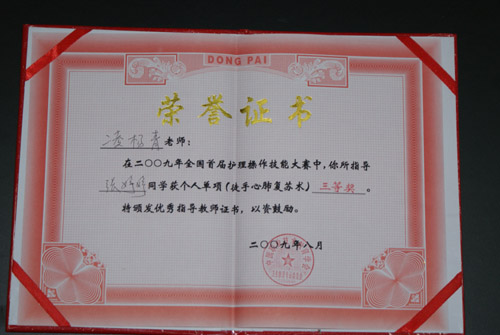 DONG PAI
荣誉证书
凌杨青老师：
在二〇〇九年全国首届护理操作技能大赛中，你所指导
张婷婷同学获个人单项（徒手心肺复苏术）三等奖。
特颁发优秀指导教师证书，以资鼓励。
二〇〇九年八月